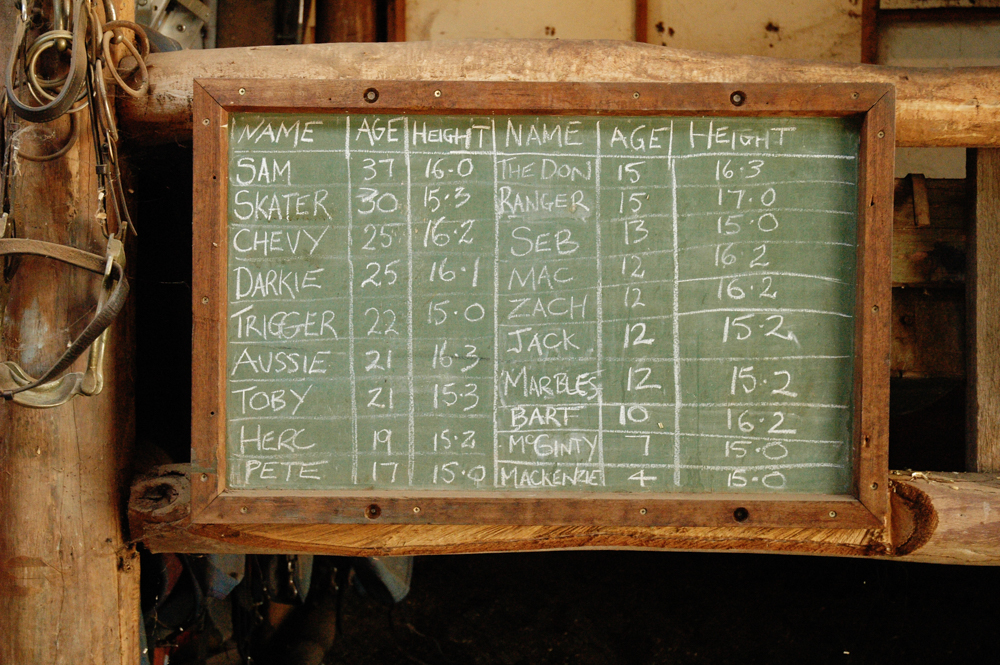 NAME AGE HEIGHT NAME AGE HEIGHT
SAM 37 16.0 THE DON 15 16.3
SKATER 30 15.3 RANGER 15 17.0
CHEVY 25 16.2 SEB 13 15.0
DARKIE 25 16.1 MAC 12 16 2
TRIGGER 22 15.0 ZACH 12 16.2
AUSSIE 21 16.3 JACK 12 15.2
TOBY 21 15.3 MARBLES 12 15.2
HERC 19 15.2 BART 10 16.2
PETE 17 15.0 McGINTY 7 15.0
MACKENZIE 4 15.0